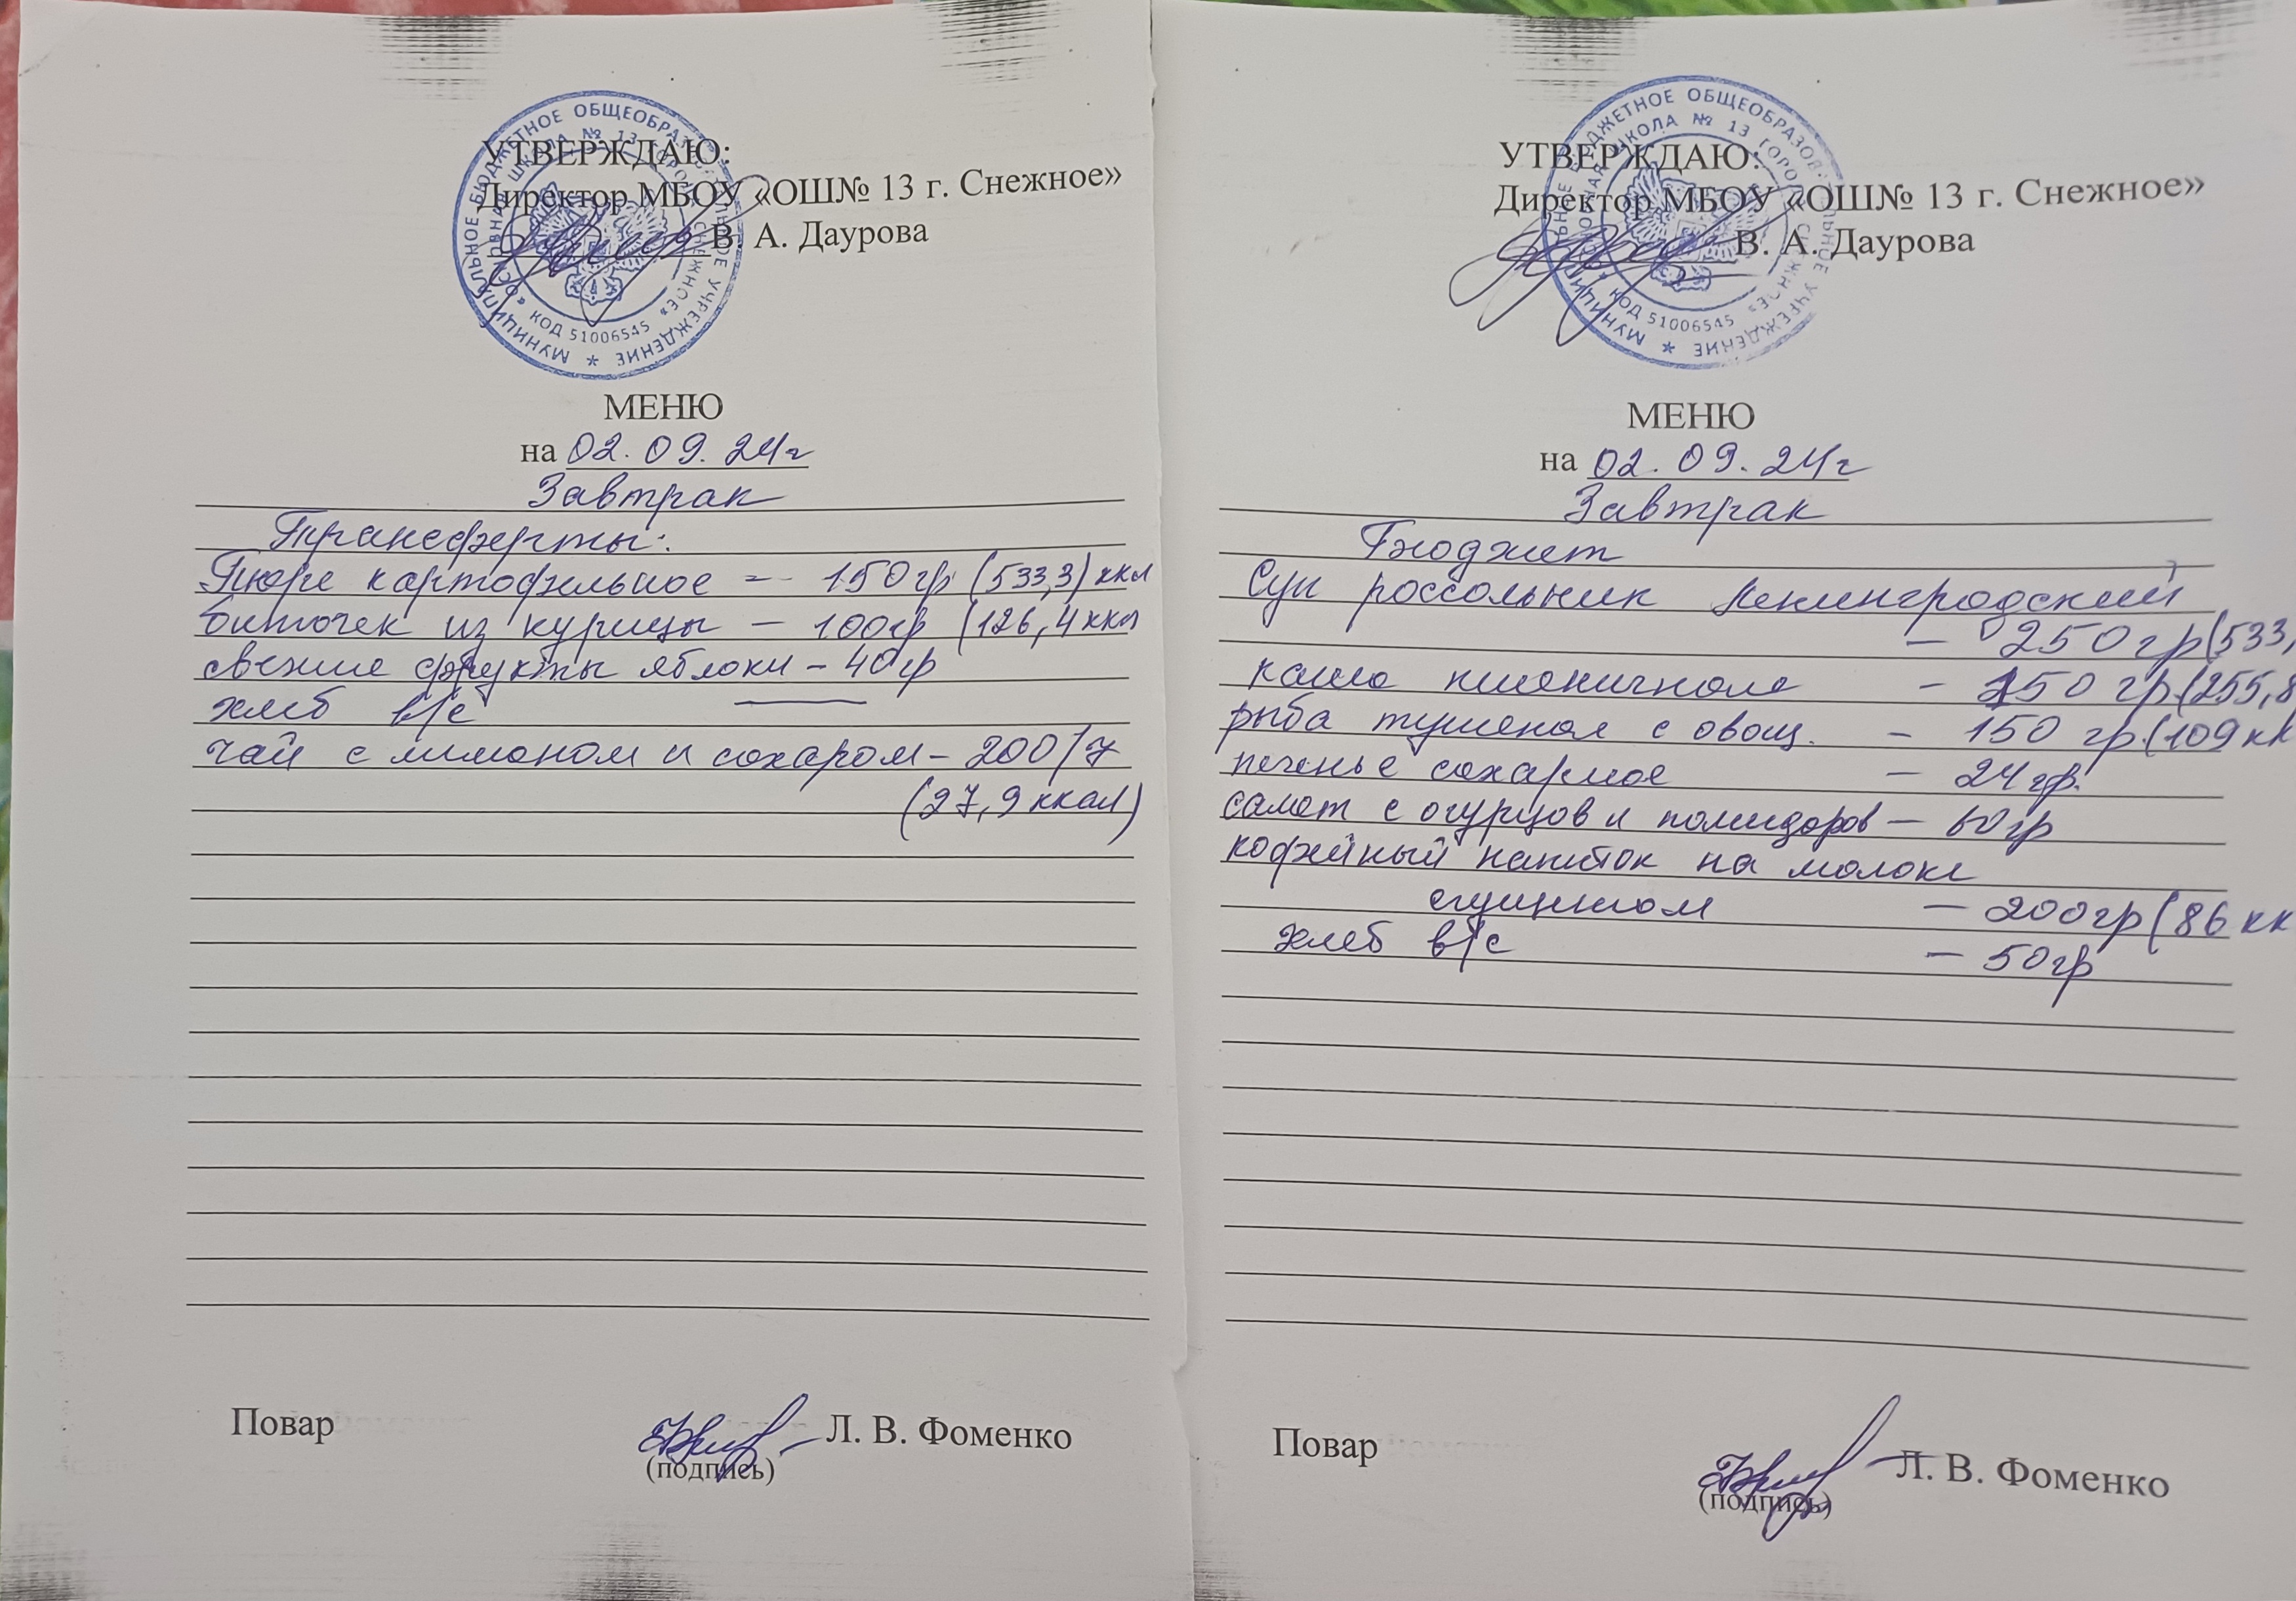 УТВЕРЖДАЮ:
Директор МБОУ «ОШ№ 13 г. Снежное»
В. А. Даурова
МУНИЦИПАЛЬНОЕ БЮДЖЕТНОЕ ОБЩЕОБРАЗОВАТЕЛЬНОЕ УЧРЕЖДЕНИЕ *
«ОСНОВНАЯ ШКОЛА № 13 ГОРОДА СНЕЖНОЕ»
КОД 51006545
МЕНЮ
на 02.09.24г
Завтрак
Трансферты:
Пюре картофельное — 150гр (533,3) ккл
биточек из курицы — 100гр (126,4 ккл
свежие фрукты яблоки – 40гр
хлеб в/с —
чай с лимоном и сахаром – 200/7
(27,9 ккал)
Повар
Л. В. Фоменко
(подпись)
УТВЕРЖДАЮ:
Директор МБОУ «ОШ№ 13 г. Снежное»
В. А. Даурова
КОД 51006545
МЕНЮ
на 02.09.24г
Завтрак
Бюджет
Суп россольник Ленинградский
– 250гр (533,
каша пшеничная – 150 гр (255,8
рыба тушеная с овощ. – 150 гр (109 кк
печенье сахарное – 24гр.
салат с огурцов и помидоров – 60гр
кофейный напиток на молоке
сгущенном – 200гр (86 кк
хлеб в/с – 50гр
Повар
Л. В. Фоменко
(подпись)